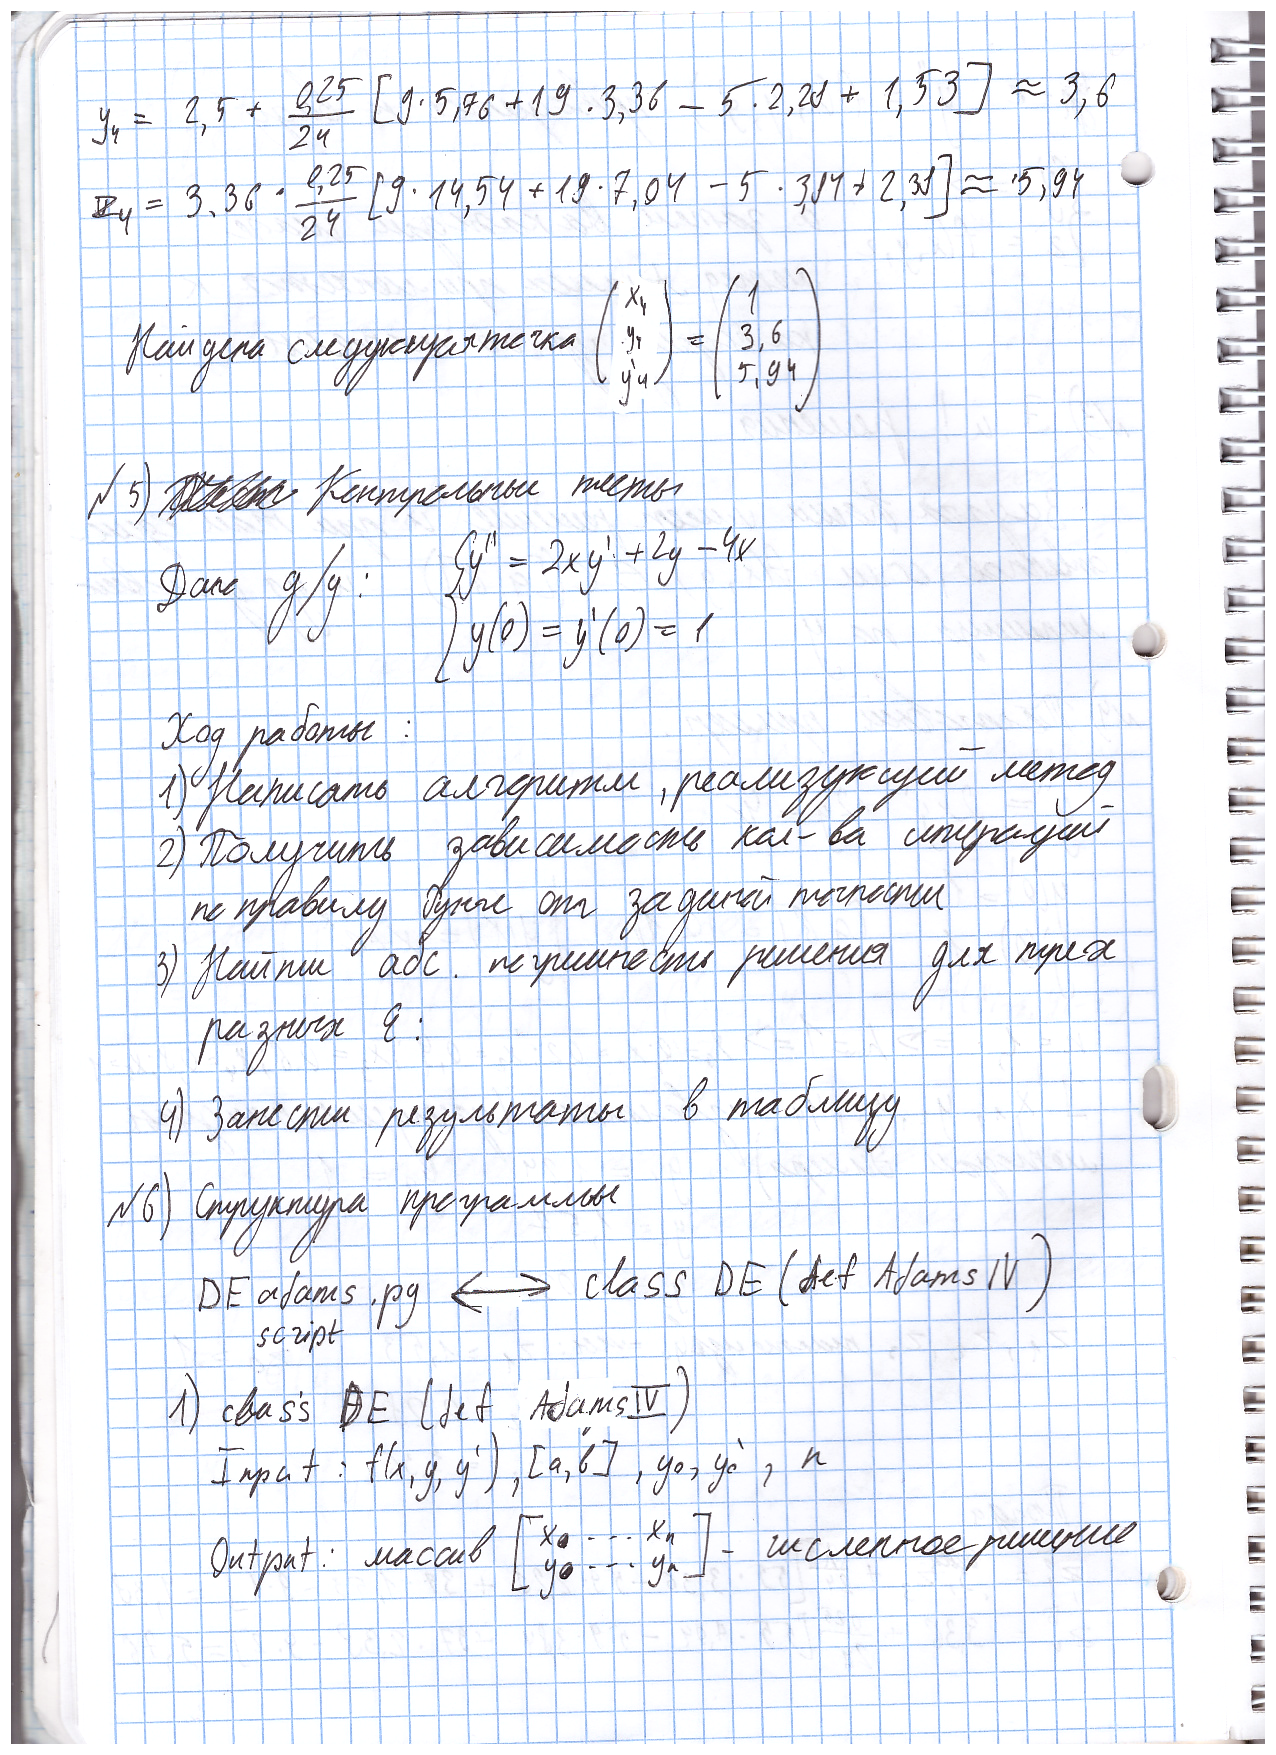 y₄ = 2,5 + 0,25/24 [9·5,76 + 19·3,36 − 5·2,28 + 1,53] ≈ 3,6
z₄ = 3.36 · 0,25/24 [9·14,54 + 19·7,04 − 5·3,94 + 2,38] ≈ 5,94
Найдена следующая точка (x₄ y₄ y'₄) = (1 3,6 5,94)
№5) Контрольные тесты
Дано д/у: {y'' = 2xy' + 2y − 4x
y(0) = y'(0) = 1
Ход работы:
1) Написать алгоритм, реализующий метод
2) Получить зависимость кол-ва итераций
по правилу Рунге от заданой точности
3) Найти абс. погрешность решения для трех
разных ε:
4) Занести результаты в таблицу
№6) Структура программы
DE adams.py ⟷ class DE (def Adams IV)
script
1) class DE (def Adams IV)
Input: f(x, y, y'), [a, b], y₀, y₀', n
Output: массив [x₀ ··· xₙ
y₀ ··· yₙ] - численное решение